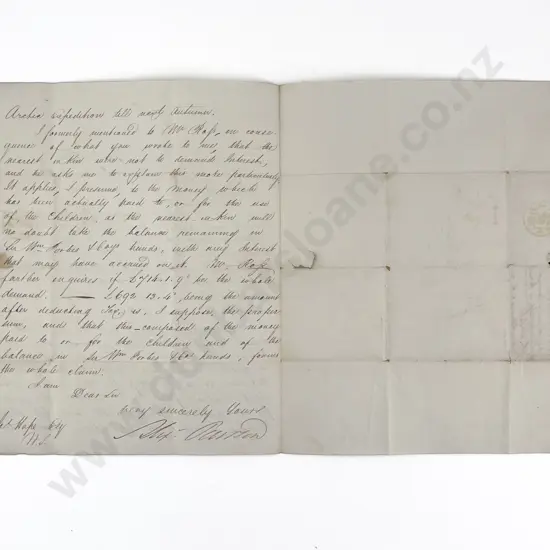 Arctic expedition till next Autumn.
I formerly mentioned to Mr Hope, in conse-
quence of what you wrote to me, that the
nearest in kin were not to demand Interest,
and he asks me to explain this more particularly
It applies, I presume, to the money which
has been actually paid to, or for the use
of the Children, as the nearest in kin will
no doubt take the balance remaining in
Sir Wm Forbes & Coys hands, with any Interest
that may have accrued on it. Mr Hope
farther enquires if £714.1.9 be the whole
demand. £692 13.4, being the amount
after deducting Tax, is, I suppose, the proper
sum, and that this composed of the money
paid to or for the Children and of the
balance in Sir Wm Forbes & Cos hands, forms
the whole claim.
I am
Dear Sir
very sincerely yours
Hope Esq
W.S.
www.dunbarsloane.co.nz